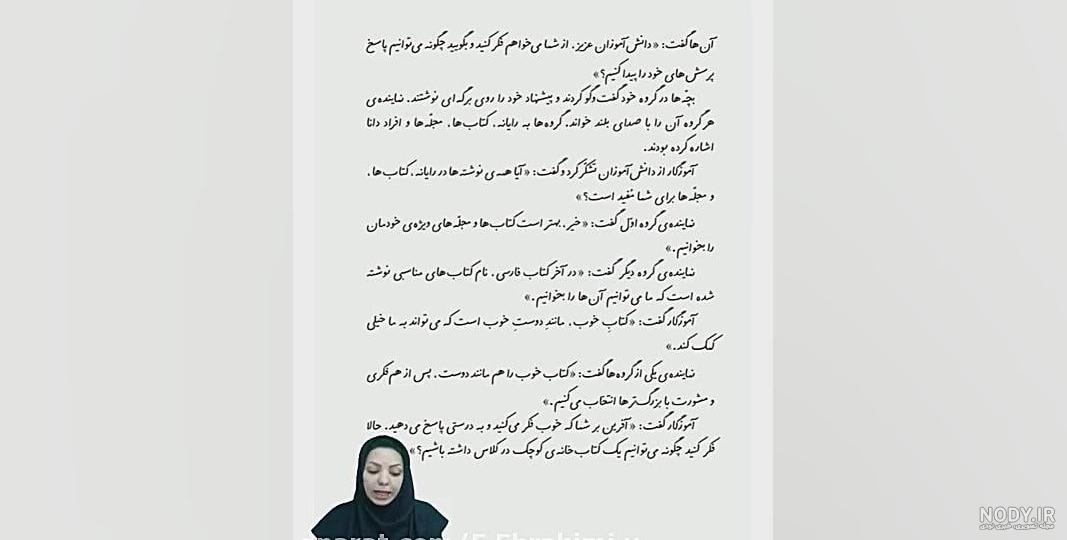 آن ها گفت: «دانش آموزان عزیز، از شما می خواهم فکر کنید و بگویید چگونه می توانیم پاسخ
پرسش های خود را پیدا کنیم؟»
بچّه ها در گروه خود گفت و گو کردند و پیشنهاد خود را روی برگه ای نوشتند. نماینده ی
هر گروه آن را با صدای بلند خواند. گروه ها به رایانه، کتاب ها، مجلّه ها و افراد دانا
اشاره کرده بودند.
آموزگار از دانش آموزان تشکّر کرد و گفت: «آیا همه ی نوشته ها در رایانه، کتاب ها،
و مجلّه ها برای شما مُفید است؟»
نماینده ی گروه اوّل گفت: «خیر، بهتر است کتاب ها و مجلّه های ویژه ی خودمان
را بخوانیم.»
نماینده ی گروه دیگر گفت: «در آخر کتاب فارسی، نام کتاب های مناسبی نوشته
شده است که ما می توانیم آن ها را بخوانیم.»
آموزگار گفت: «کتابِ خوب، مانندِ دوستِ خوب است که می تواند به ما خیلی
کمک کند.»
نماینده ی یکی از گروه ها گفت: «کتاب خوب را هم مانند دوست، پس از هم فکری
و مشورت با بزرگ ترها انتخاب می کنیم.»
آموزگار گفت: «آفرین بر شما که خوب فکر می کنید و به درستی پاسخ می دهید. حالا
فکر کنید چگونه می توانیم یک کتاب خانه ی کوچک در کلاس داشته باشیم؟»
NODY.IR